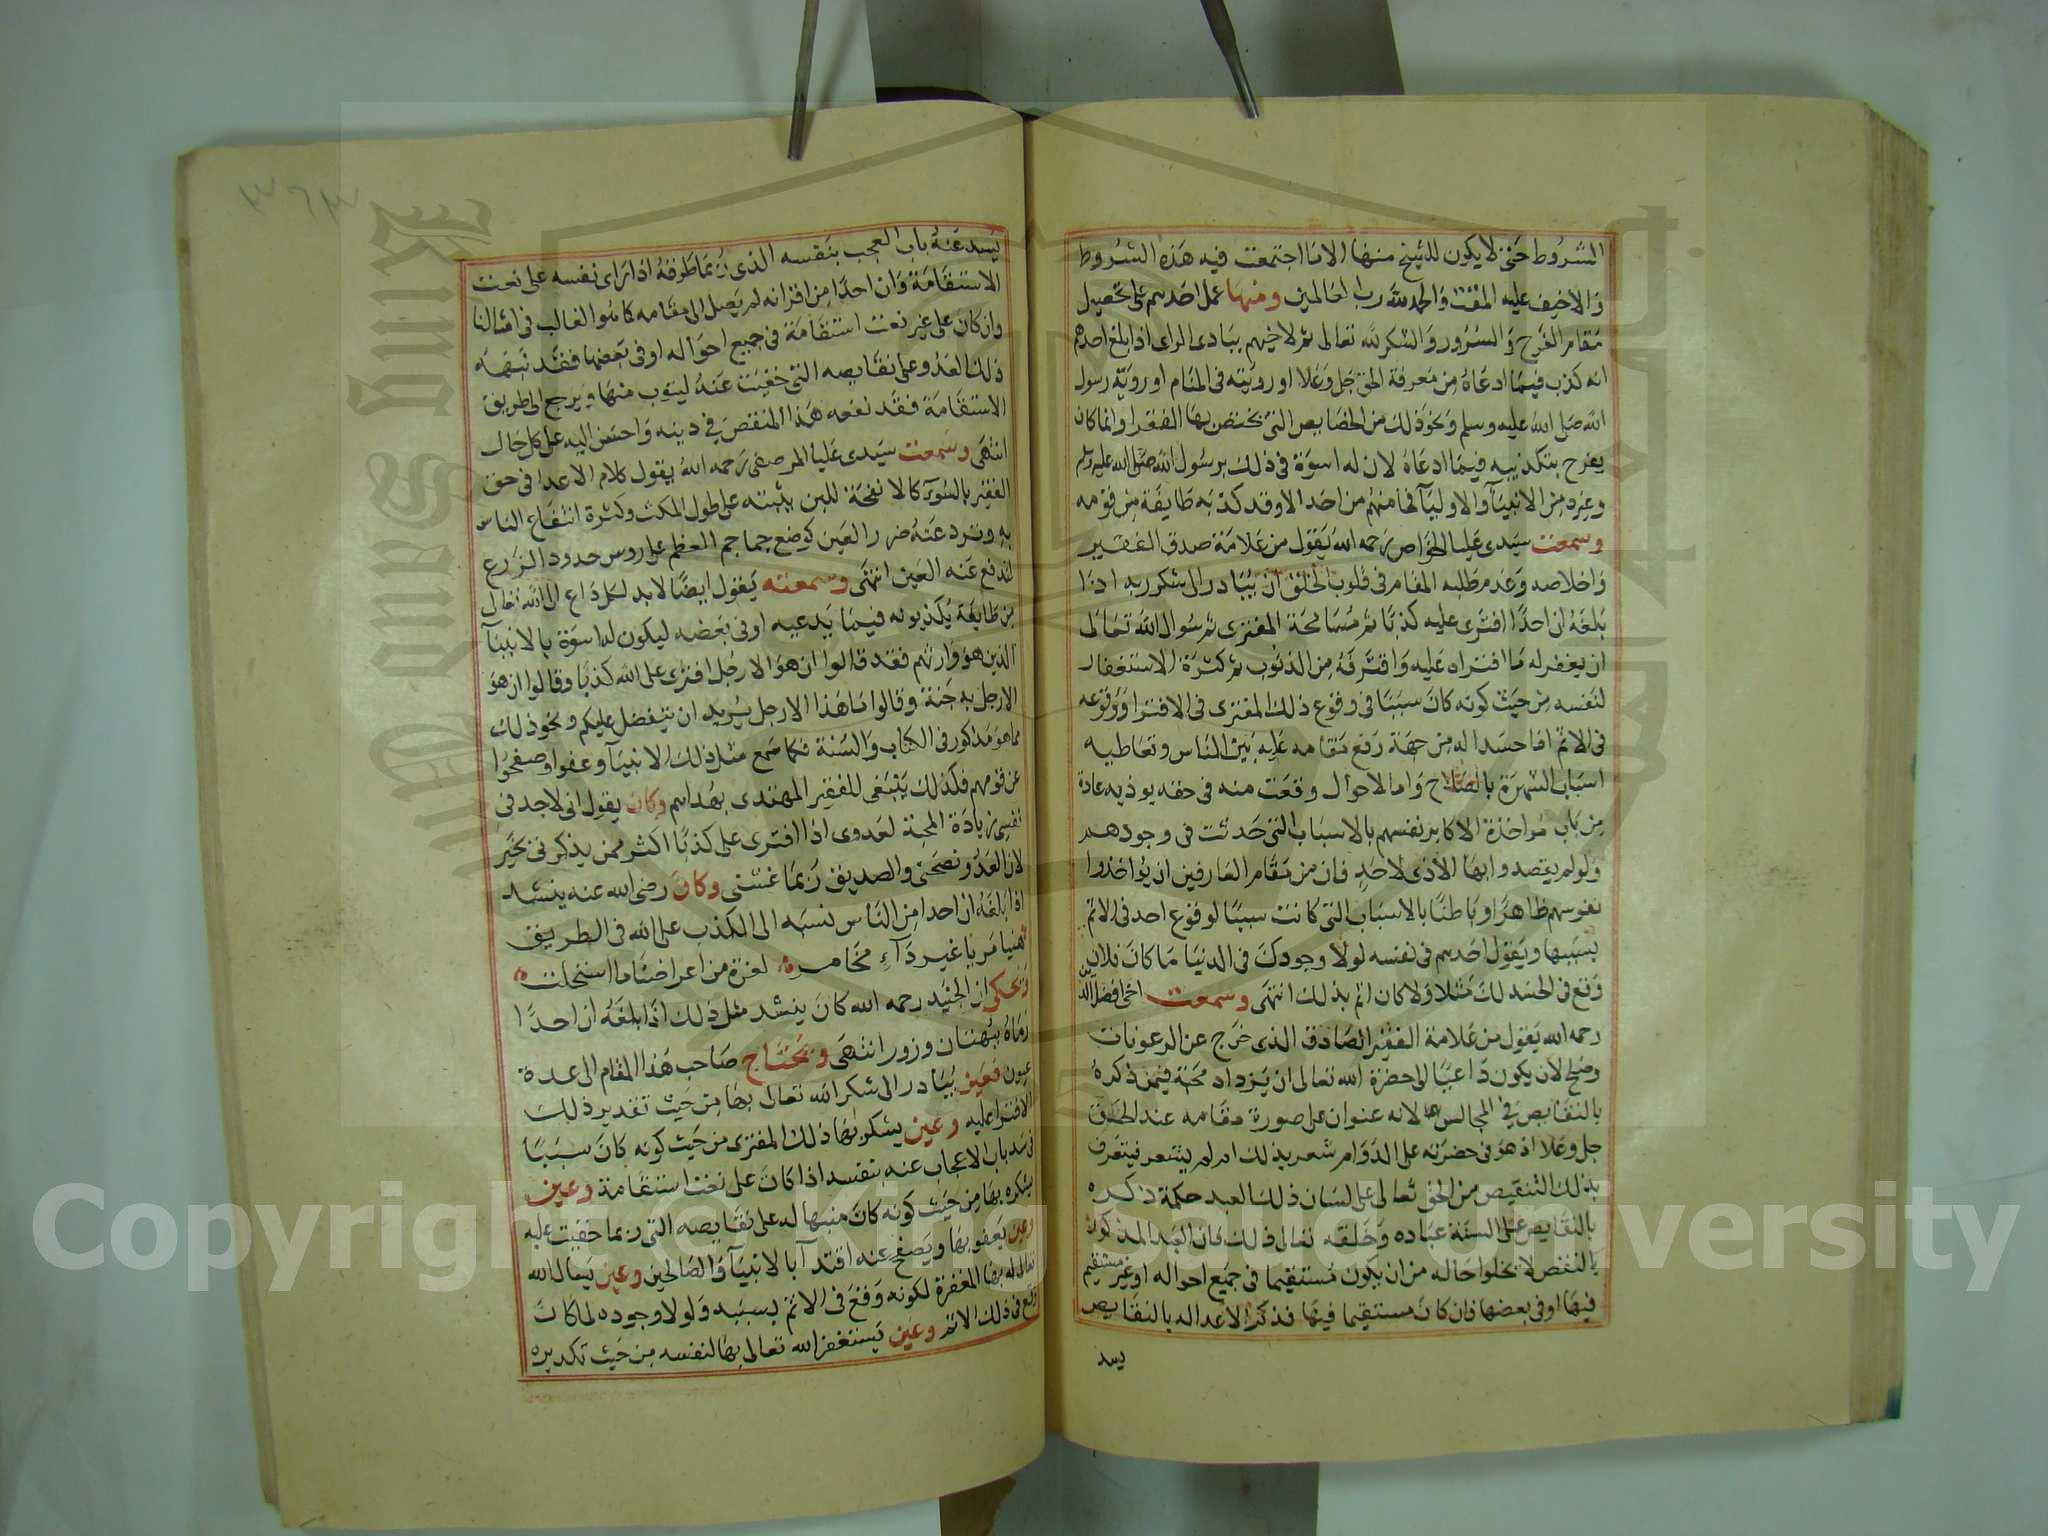 الشروط حتى لا يكون للشيخ منها الا ما اجتمعت فيه هذه الشروط
والا خيف عليه المقت والحمد لله رب العالمين ومنها عمل احدهم على تحصيل
مقام الفرح والسرور والشكر لله تعالى ثم لاخيهم ببادى الراى اذا بلغ احدهم
انه كذب فيما ادعاه من معرفة الحق جل وعلا او رويته فى المنام او روية رسول
الله صلى الله عليه وسلم ونحو ذلك من الخصايص التى يختص بها الفقرا وانما كان
يفرح بتكذيبه فيما ادعاه لان له اسوة فى ذلك برسول الله صلى الله عليه وسلم
وغيره من الانبيآ والاوليآ فما منهم من احد الا وقد كذبه طايفة من قومه
وسمعت سيدى عليا الخواص رحمه الله يقول من علامة صدق الفقير
واخلاصه وعدم طلبه المقام فى قلوب الخلق ان يبادر الى شكر ربه اذا
بلغه ان احدا افترى عليه كذبا ثم مسامحة المفترى ثم سوال الله تعالى
ان يغفر له ما افتراه عليه واقترفه من الذنوب ثم كثرة الاستغفار
لنفسه من حيث كونه كان سببا فى وقوع ذلك المفترى فى الافترا ووقوعه
فى الاثم اما حسدا له من جهة رفع مقامه عليه بين الناس وتعاطيه
اسباب الشهرة بالصلاح واما لاحوال وقعت منه فى حقه يوذيه عادة
من باب مواخذة الاكابر نفسهم بالاسباب التى حدثت فى وجودهم
ولو لم يقصدوا بها الاذى لاحد فان من مقام العارفين ان يؤاخذوا
نفوسهم ظاهرا وباطنا بالاسباب التى كانت سببا لوقوع احد فى الاثم
بسببها ويقول احدهم فى نفسه لولا وجودك فى الدنيا ما كان فلان
وقع فى الحسد لك مثلا ولا كان اثم بذلك انتهى وسمعت اخى افضل الدين
رحمه الله يقول من علامة الفقير الصادق الذى خرج عن الرعونات
وصلح لان يكون داعيا الى حضرة الله تعالى ان يزداد محبة فيمن ذكره
بالنقايص فى المجالس لانه عنوان على صورة مقامه عند الحق
جل وعلا اذ هو فى حضرته على الدوام شعر بذلك ام لم يشعر فيتعرف
بذلك التنقيص من الحق تعالى على لسان ذلك العبد حكمة ذكره
بالنقايص على السنة عباده وخلقه تعالى ذلك فان العبد المذكور
بالنقص لا يخلوا حاله من ان يكون مستقيما فى جميع احواله او غير مستقيم
فيها او فى بعضها فان كان مستقيما فيها فذكر الاعدا له بالنقايص
يسد
٣٦٣
يسد عنه باب العجب بنفسه الذى ربما طرقه اذا راى نفسه على نعت
الاستقامة وان احدا من اقرانه لم يصل الى مقامه كما هو الغالب فى امثالنا
وان كان على غير نعت استقامة فى جميع احواله او فى بعضها فقد نبهه
ذلك العدو على نقايصه التى خفيت عنه ليتوب منها ويرجع الى طريق
الاستقامة فقد نفعه هذا المنقص فى دينه واحسن اليه على كل حال
انتهى وسمعت سيدى عليا المرصفى رحمه الله يقول كلام الاعدا فى حق
الفقير بالسوء كالانفحة للبن يثبته على طول المكث وكثرة انتفاع الناس
به وترد عنه ضرر العين كوضع جماجم العظم على روس حدود الزرع
لتدفع عنه العين انتهى وسمعته يقول ايضا لابد لكل داع الى الله تعالى
من طايفة يكذبونه فيما يدعيه او فى بعضه ليكون له اسوة بالانبيآ
الذين هو وارثهم فقد قالوا ان هو الا رجل افترى على الله كذبا وقالوا ان هو
الا رجل به جنة وقالوا ما هذا الا رجل يريد ان يتفضل عليكم ونحو ذلك
مما هو مذكور فى الكتاب والسنة فكما سمع مثل ذلك الانبيآ وعفوا وصفحوا
عن قومهم فكذلك ينبغى للفقير المهتدى بهداهم وكان يقول انى لاجد فى
نفسى زيادة المحبة لعدوى اذا افترى على كذبا اكثر ممن يذكرنى بخير
لان العدو نصحنى والصديق ربما غشنى وكان رضى الله عنه ينشد
اذا بلغه ان احدا من الناس نسبه الى الكذب على الله فى الطريق
هنيا مريا غير دآء مخامره لعزة من اعراضنا ما استحلت
وحكى ان الجنيد رحمه الله كان ينشد مثل ذلك اذا بلغه ان احدا
رماه ببهتان وزور انتهى ويحتاج صاحب هذا المقام الى عدة
عيون فعين يبادر الى شكر الله تعالى بها من حيث تقدير ذلك
الافترا عليه وعين يشكر بها ذلك المفترى من حيث كونه كان سببا
فى سد باب الاعجاب عنه بنفسه اذا كان على نعت استقامة وعين
يشكره بها من حيث كونه كان منبها له على نقايصه التى ربما خفيت عليه
وعين يعفو بها ويصفح عنه اقتدآ بالانبيآ والصالحين وعين يسال الله
تعالى له بها المغفرة لكونه وقع فى الاثم بسببه ولولا وجوده لما كان
وقع فى ذلك الاثم وعين يستغفر الله تعالى بها لنفسه من حيث تكديره
Copyright © King Saud University